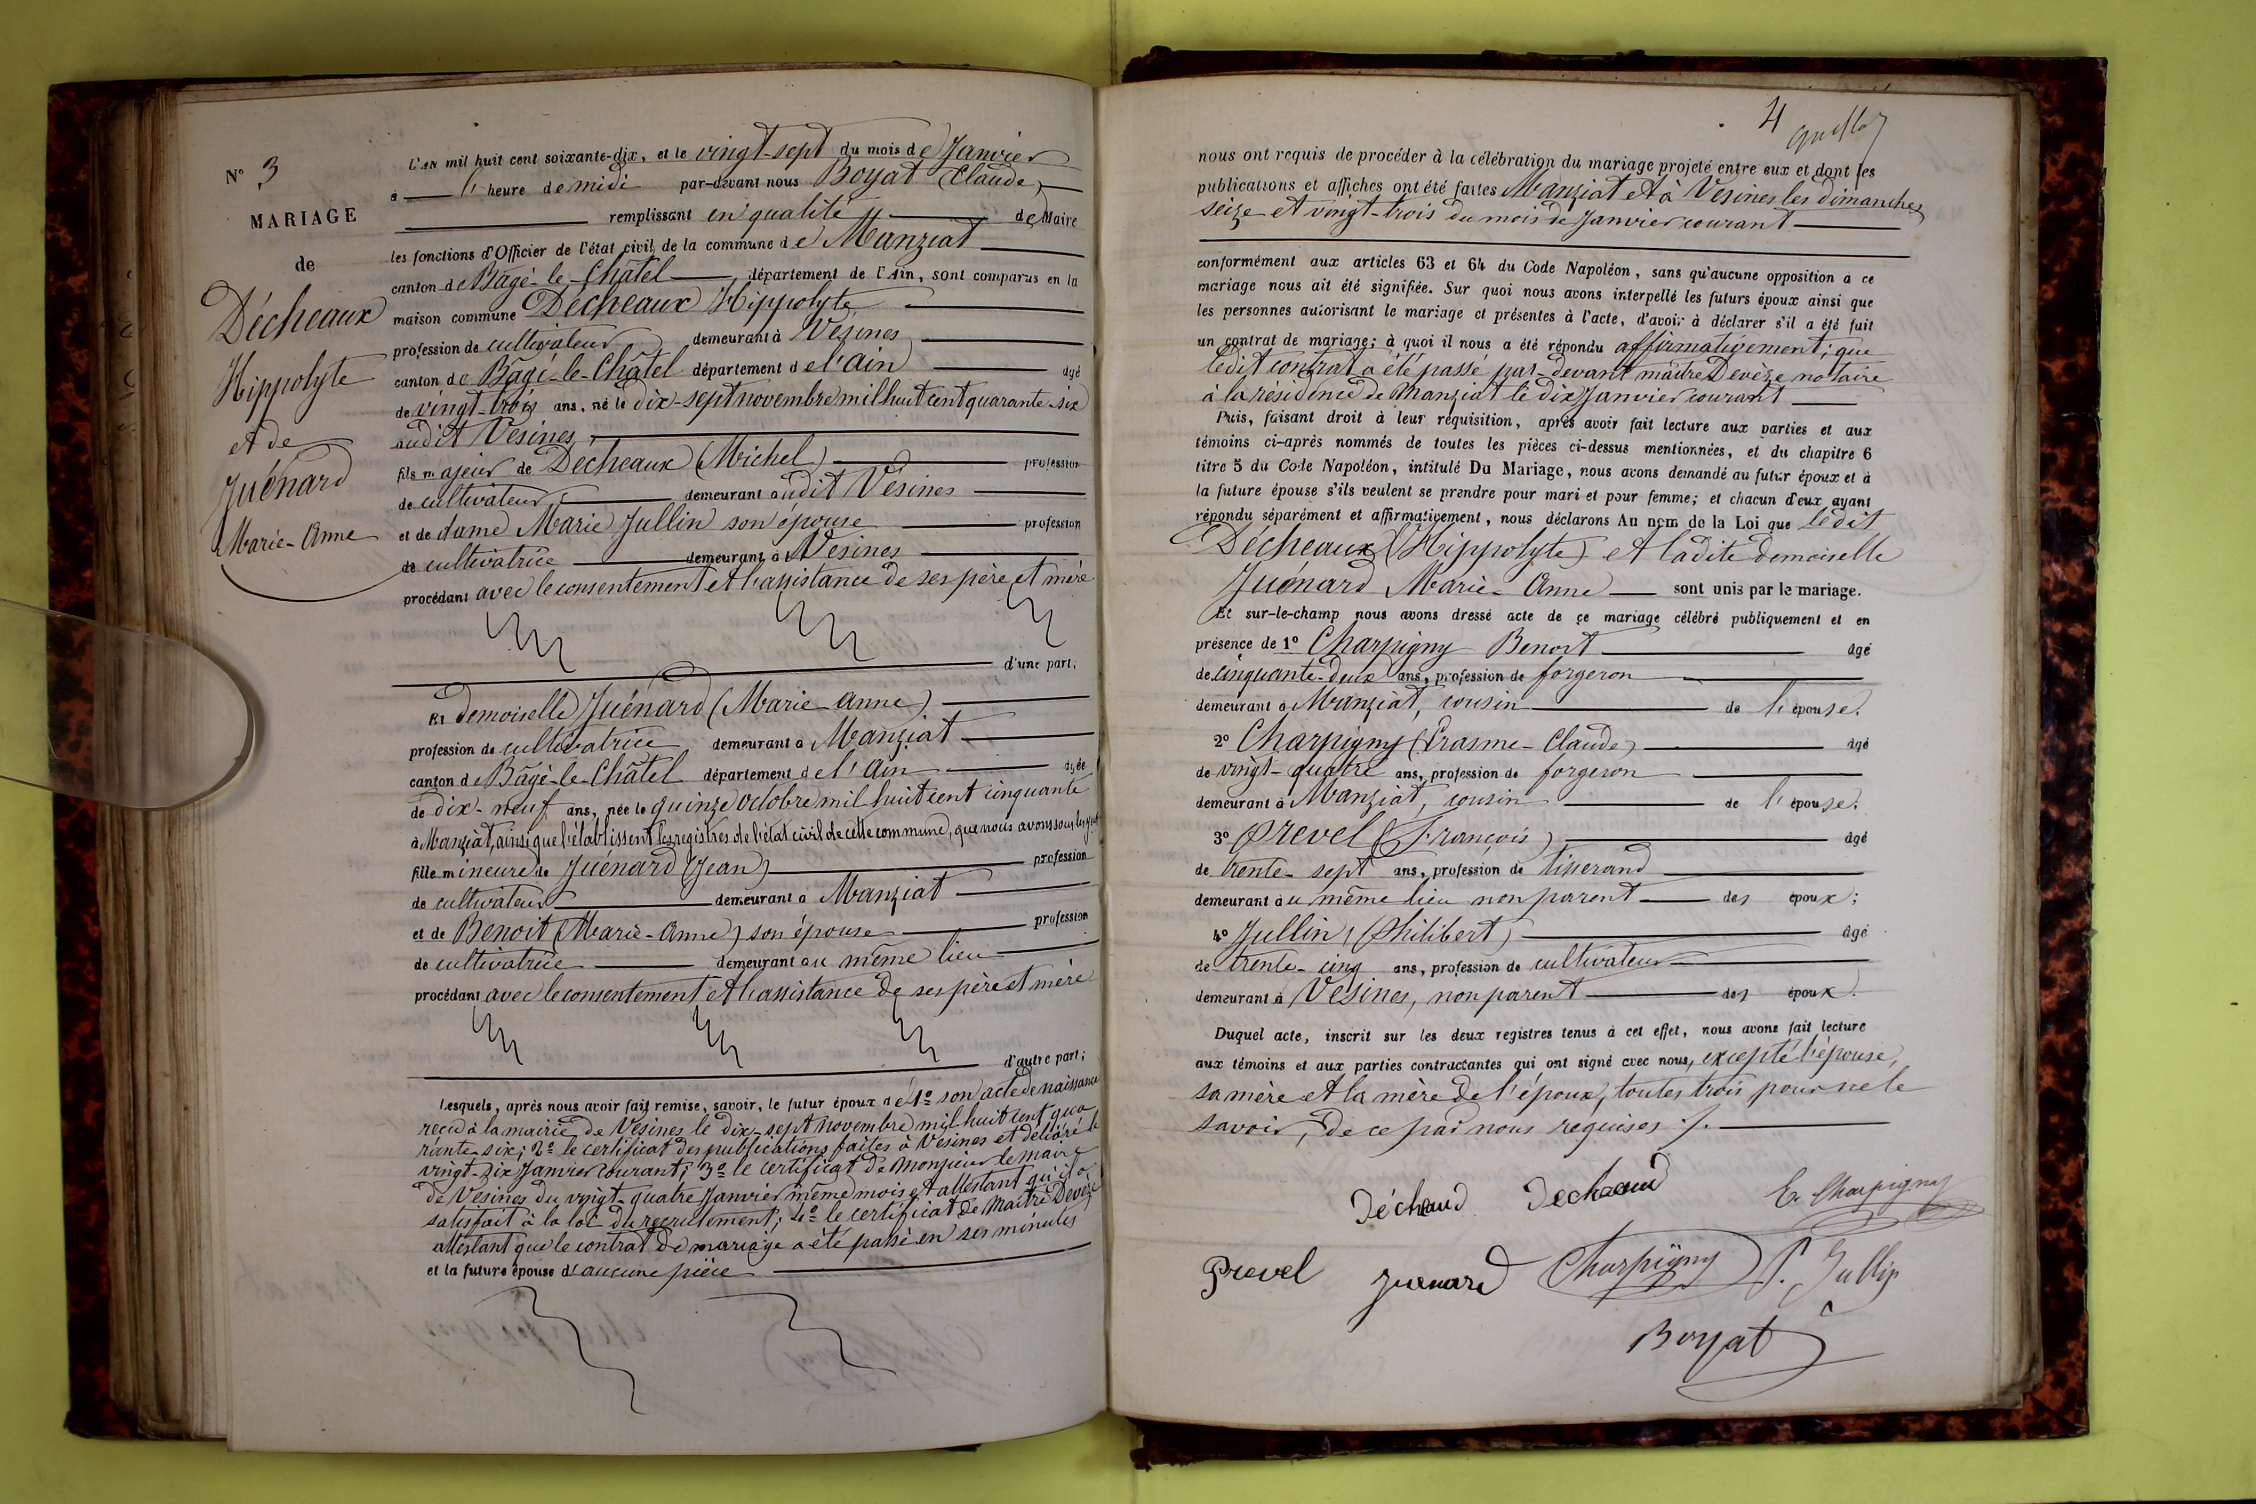 N° 3
MARIAGE
de
Décheaux
Hippolyte
et de
Juénard
Marie-Anne
L'an mil huit cent soixante-dix, et le vingt-sept du mois de Janvier
à l'heure de midi par-devant nous Boyat (Claude)
remplissant en qualité de Maire
les fonctions d'Officier de l'état civil de la commune de Manziat
canton de Bâgé-le-Châtel département de l'Ain, sont comparus en la
maison commune Décheaux Hippolyte
profession de cultivateur demeurant à Vésines
canton de Bâgé-le-Châtel département de l'Ain âgé
de vingt-trois ans, né le dix-sept novembre mil huit cent quarante-six
audit Vésines,
fils majeur de Décheaux (Michel) profession
de cultivateur demeurant audit Vésines
et de dame Marie Jullin son épouse profession
de cultivatrice demeurant à Vésines
procédant avec le consentement et l'assistance de ses père et mère
d'une part;
Et demoiselle Juénard (Marie-Anne)
profession de cultivatrice demeurant à Manziat
canton de Bâgé-le-Châtel département de l'Ain âgée
de dix-neuf ans, née le quinze octobre mil huit cent cinquante
à Manziat, ainsi que l'établissent les registres de l'état civil de cette commune, que nous avons sous les yeux
fille mineure de Juénard (Jean) profession
de cultivateur demeurant à Manziat
et de Benoit (Marie-Anne) son épouse profession
de cultivatrice demeurant au même lieu
procédant avec le consentement et l'assistance de ses père et mère
d'autre part;
Lesquels, après nous avoir fait remise, savoir, le futur époux de 1° son acte de naissance
reçu à la mairie de Vésines le dix-sept novembre mil huit cent qua
rante-six; 2° le certificat des publications faites à Vésines et délivré le
vingt-six Janvier courant; 3° le certificat de Monsieur le maire
de Vésines du vingt-quatre Janvier même mois et attestant qu'il a
satisfait à la loi du recrutement; 4° le certificat de Maître Devèze
attestant que le contrat de mariage a été passé en ses minutes
et la future épouse d'aucune pièce
4
nous ont requis de procéder à la célébration du mariage projeté entre eux et dont les
publications et affiches ont été faites Manziat et à Vésines les dimanches
seize et vingt-trois du mois de Janvier courant
conformément aux articles 63 et 64 du Code Napoléon, sans qu'aucune opposition à ce
mariage nous ait été signifiée. Sur quoi nous avons interpellé les futurs époux ainsi que
les personnes autorisant le mariage et présentes à l'acte, d'avoir à déclarer s'il a été fait
un contrat de mariage; à quoi il nous a été répondu affirmativement; que
ledit contrat a été passé par-devant maître Devèze notaire
à la résidence de Manziat le dix Janvier courant
Puis, faisant droit à leur réquisition, après avoir fait lecture aux parties et aux
témoins ci-après nommés de toutes les pièces ci-dessus mentionnées, et du chapitre 6
titre 5 du Code Napoléon, intitulé Du Mariage, nous avons demandé au futur époux et à
la future épouse s'ils veulent se prendre pour mari et pour femme; et chacun d'eux ayant
répondu séparément et affirmativement, nous déclarons Au nom de la Loi que ledit
Décheaux (Hippolyte) et ladite demoiselle
Juénard Marie-Anne sont unis par le mariage.
Et sur-le-champ nous avons dressé acte de ce mariage célébré publiquement et en
présence de 1° Charpigny Benoit âgé
de cinquante-deux ans, profession de forgeron
demeurant à Manziat, cousin de l'épouse.
2° Charpigny (Erasme-Claude) âgé
de vingt-quatre ans, profession de forgeron
demeurant à Manziat, cousin de l'épouse.
3° Prevel (François) âgé
de trente-sept ans, profession de tisserand
demeurant au même lieu non parent des époux;
4° Jullin (Philibert) âgé
de trente-cinq ans, profession de cultivateur
demeurant à Vésines, non parent des époux.
Duquel acte, inscrit sur les deux registres tenus à cet effet, nous avons fait lecture
aux témoins et aux parties contractantes qui ont signé avec nous, excepté l'épouse,
sa mère et la mère de l'époux, toutes trois pour ne le
savoir, de ce par nous requises ./.
Déchaud Decheaud E. Charpigny
Prevel Juenard Charpigny P. Jullin
Boyat